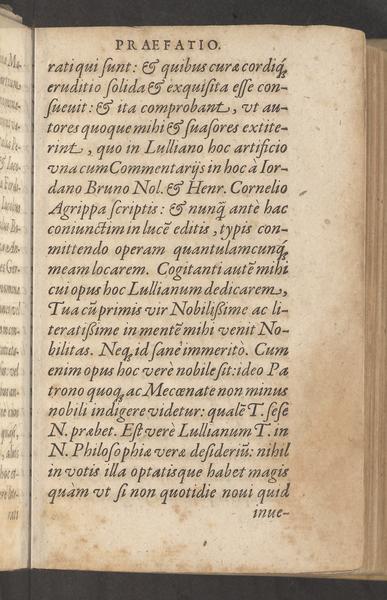 PRAEFATIO.
rati qui ſunt: & quibus curæ cordiq́;
eruditio ſolida & exquiſita eſſe con-
ſueuit: & ita comprobant, vt au-
tores quoque mihi & ſuaſores extite-
rint, quo in Lulliano hoc artificio
vna cum Commentarijs in hoc à Ior-
dano Bruno Nol. & Henr. Cornelio
Agrippa ſcriptis: & nunq̃ antè hac
coniunctim in lucẽ editis, typis con-
mittendo operam quantulamcunq́;
meam locarem. Cogitanti autẽ mihi
cui opus hoc Lullianum dedicarem,
Tua cũ primis vir Nobiliſsime ac li-
teratiſsime in mentẽ mihi venit No-
bilitas. Neq; id ſanè immeritò. Cum
enim opus hoc verè nobile ſit: ideo Pa
trono quoq; ac Mecœnate non minus
nobili indigere videtur: qualẽ T. ſeſe
N. præbet. Eſt verè Lullianum T. in
N. Philoſophiæ veræ deſideriũ: nihil
in votis illa optatisque habet magis
quàm vt ſi non quotidie noui quid
inue-